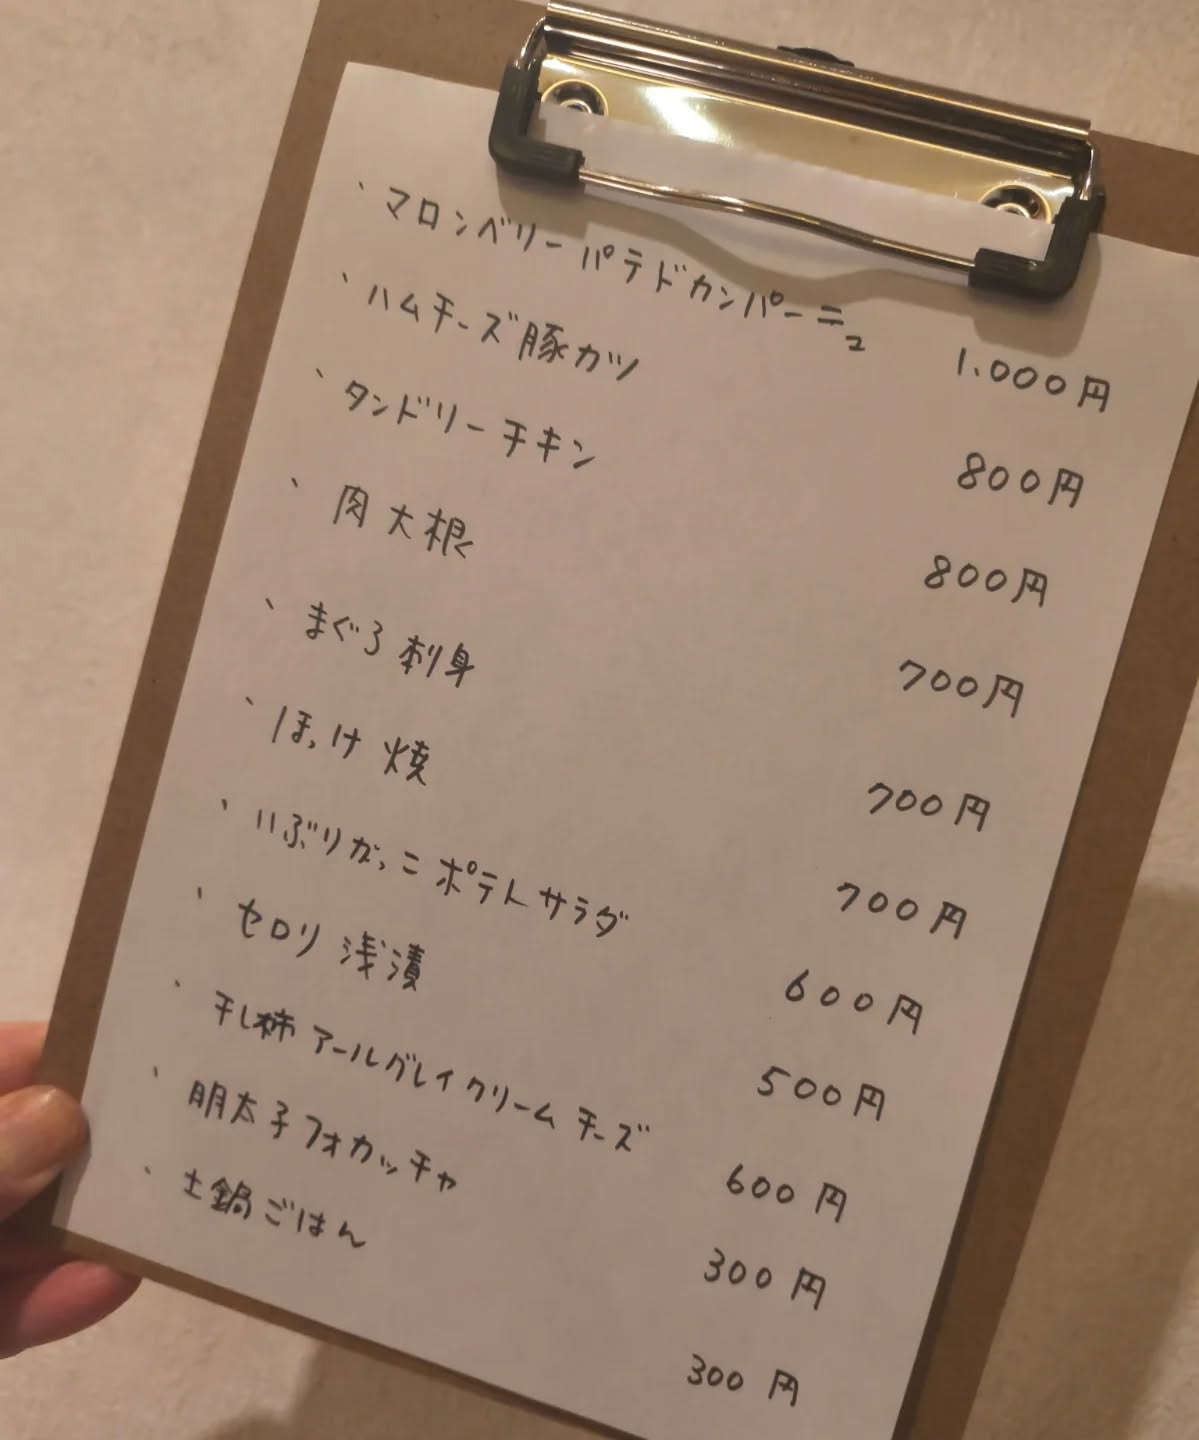 、マロンベリーパテドカンパーニュ 1.000円
、ハムチーズ豚カツ 800円
、タンドリーチキン 800円
、肉大根 700円
、まぐろ刺身 700円
、ほっけ焼 700円
、いぶりがっこポテトサラダ 600円
、セロリ浅漬 500円
、干し柿アールグレイクリームチーズ 600円
、明太子フォカッチャ 300円
、土鍋ごはん 300円